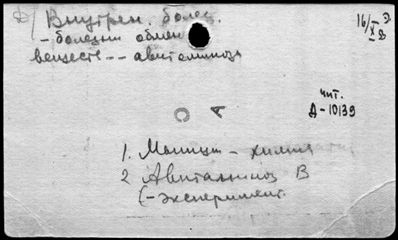 Внутрен. болез.
- болезни обмен
веществ -- авитаминоз
16/X
чит.
Д-10139
С А
1. Маниит - химия
2 Авитаминоз В
(-эксперимент.